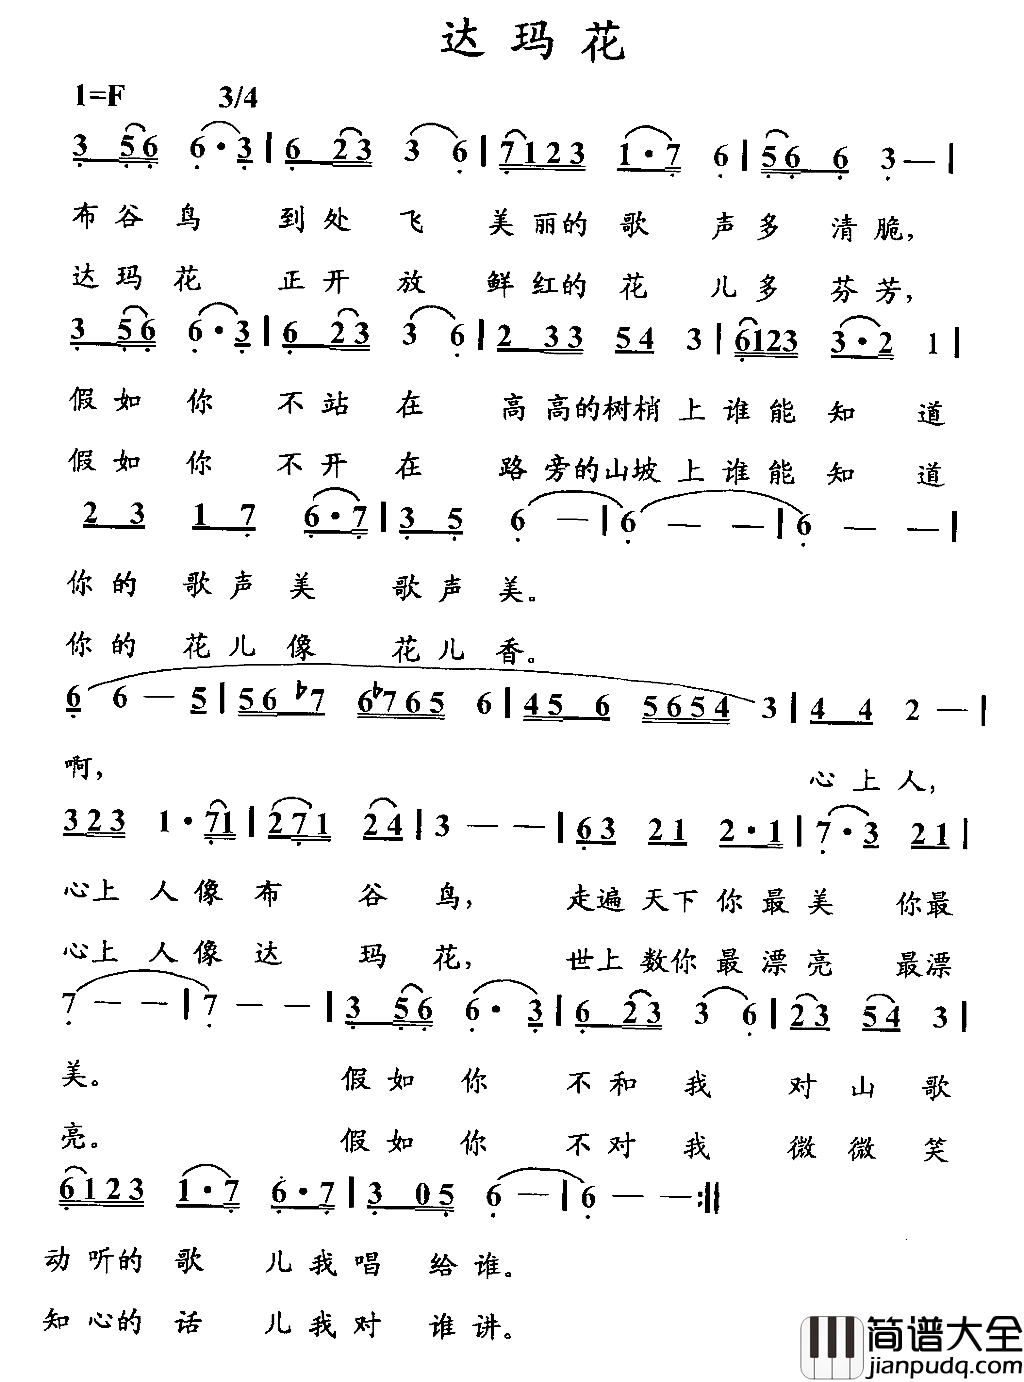 达玛花
1=F 3/4
3 56 6·3 | 6 23 3 6 | 7123 1·7 6 | 56 6 3— |
布谷鸟 到处飞 美丽的歌 声多清脆,
达玛花 正开放 鲜红的花 儿多芬芳,
3 56 6·3 | 6 23 3 6 | 2 33 54 3 | 6123 3·2 1 |
假如你 不站在 高高的树梢上谁能知道
假如你 不开在 路旁的山坡上谁能知道
23 17 6·7 | 35 6 — | 6 — — | 6 — —
你的歌声美 歌声美。
你的花儿像 花儿香。
6 6 — 5 | 56 ♮7 6♮765 6 | 45 6 5654 3 | 44 2 — |
啊, 心上人,
323 1·71 | 271 24 | 3 — — | 63 21 2·1 | 7·3 21 |
心上人像布谷鸟, 走遍天下你最美你最
心上人像达玛花, 世上数你最漂亮最漂
7 — — | 7 — — | 3 56 6·3 | 6 23 3 6 | 23 54 3 |
美。 假如你 不和我 对山歌
亮。 假如你 不对我 微微笑
6123 1·7 6·7 | 3 05 6 — | 6 — — :||
动听的歌儿我唱给谁。
知心的话儿我对谁讲。
简谱大全
jianpudq.com